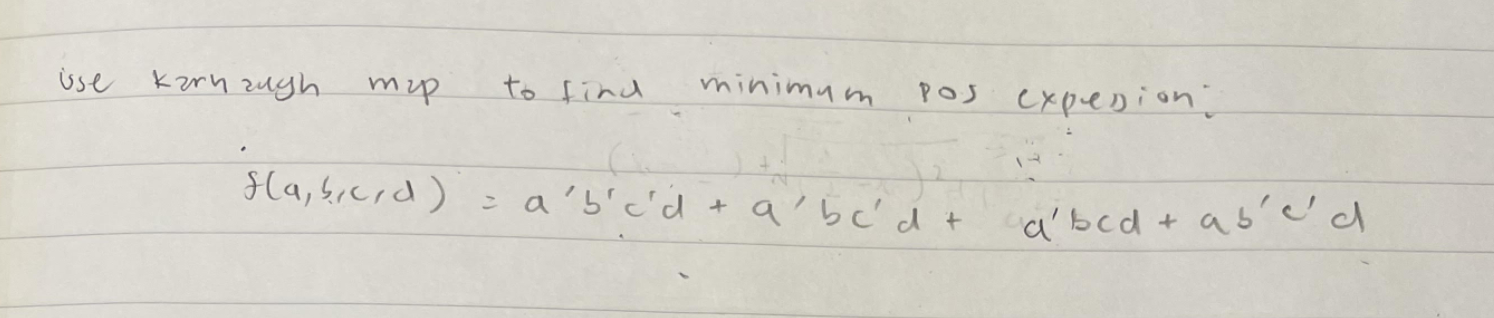 Use Karnaugh map to find minimum POS expresion:
f(a,b,c,d) = a'b'c'd + a'bc'd + a'bcd + ab'c'd